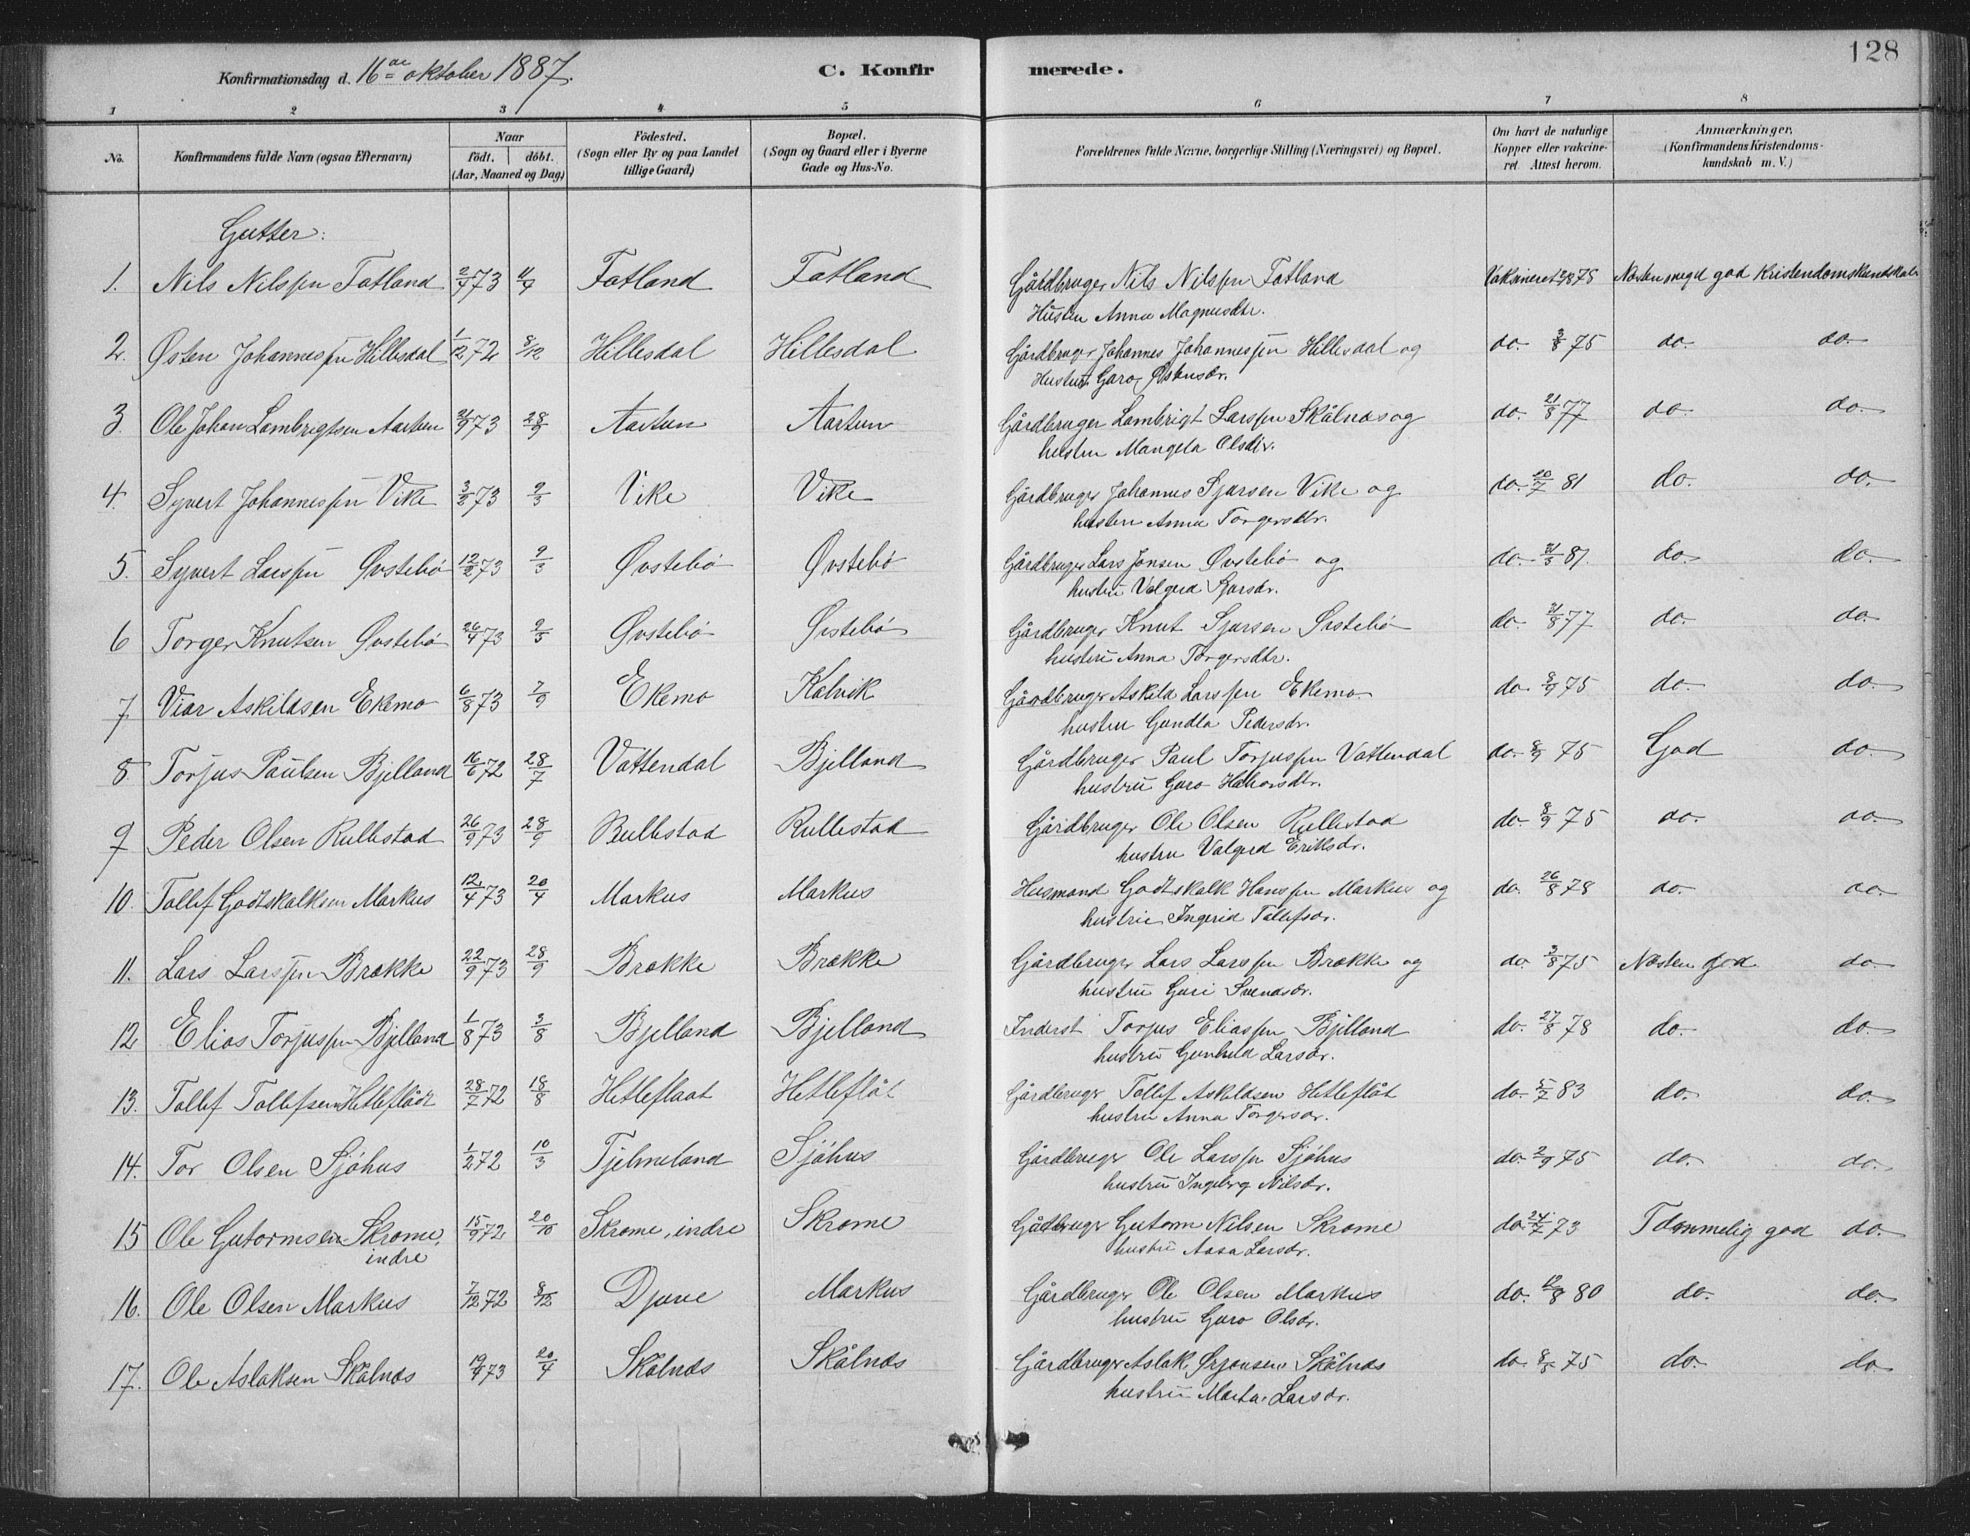 128
Konfirmationsdag d. 16de oktober 1887.
C. Konfirmerede.
1 2 3 4 5 6 7 8
No. Konfirmandens fulde Navn (ogsaa Efternavn) Naar födt. döbt. (Aar, Maaned og Dag) Födested. (Sogn eller By og paa Landet tillige Gaard) Bopæl. (Sogn og Gaard eller i Byerne Gade og Hus-No. Forældrenes fulde Navne, borgerlige Stilling (Næringsvei) og Bopæl. Om havt de naturlige Kopper eller vakcineret. Attest herom. Anmærkninger. (Konfirmandens Kristendomskundskab m. V.)
Gutter:
1. Nils Nilssen Fatland 2/9 73 Fatland Fatland Gårdbruger Nils Nilssen Fatland Vaksineret 75 Næsten meget god Kristendomskundskab
Hustru Anna Magnusdtr.
2. Østen Johannessen Hillesdal 1/12 72 8/12 Hillesdal Hillesdal Gårdbruger Johannes Johannessen Hillesdal og do. 3/8 75 do. do.
Hustru Guro Østensdr.
3. Ole Johan Lambrigtsen Aartun 21/9 73 28/9 Aartun Aartun Gårdbruger Lambrigt Larssen Skålnæs og do. 21/8 77 do. do.
hustru Mangela Olsdtr.
4. Syvert Johannessen Vike 3/2 73 9/3 Vike Vike Gårdbruger Johannes Sjursen Vike og do. 20/7 81 do. do.
hustru Anna Torgersdtr.
5. Syvert Larssen Øvstebö 12/2 73 9/3 Øvstebö Øvstebö Gårdbruger Lars Jonsen Øvstebö og do. 81. do. do.
hustru Valgerd Sjursdr.
6 Torger Knutsen Øvstebö 26/4 73 Øvstebö Øvstebö Gårdbruger Knut Sjursen Øvstebö do. 21/8 77 do. do.
hustru Anna Torgersdtr.
7. Viar Askildsen Ekemo 6/8 73 7/9 Ekemo Kalvik Gårdbruger Askild Larssen Ekemo do. 8/9 75 do. do.
hustru Gundla Pedersdr.
8 Torjus Paulsen Bjelland 16/6 72 28/7 Vattendal Bjelland Gårdbruger Paul Torjussen Vattendal do. 8/9 75 God do.
hustru Guro
9 Peder Olsen Rullestad 26/9 73 28/9 Rullestad Rullestad Gårdbruger Ole Olsen Rullestad do. 8/9 75 do. do.
hustru Valgerd Eriksdr.
10. Tollef Godtskalksen Markus 12/4 73 20/4 Markus Markus Husmand Godtskalk Hanssen Markus og do. 26/8 78 do. do.
hustru Ingerid Tollefsdr.
11. Lars Larssen Brække 22/9 73 28/9 Brække Brække Gårdbruger Lars Larssen Brække og do. 3/8 75 Næsten god do.
hustru Guri Svendsdr.
12 Elias Torjussen Bjelland 1/8 73 3/8 Bjelland Bjelland Inderst Torjus Eliassen Bjelland do. 27/8 78 do. do.
hustru Gunhild Larsdr.
13. Tollef Tollefsen Hetleflåt 28/7 72 18/8 Hetleflaat Hetleflåt Gårdbruger Tollef Askildsen Hetleflåt do. 5/7 83 do. do.
hustru Anna Torgersdr.
14. Tor Olsen Sjöhus 1/2 72 10/3 Tjelmeland Sjöhus Gårdbruger Ole Larssen Sjöhus do. 2/9 75 do. do.
hustru Ingebrg Nilsdr.
15 Ole Gutormsen Skrome, 15/9 72 20/10 Skrome, indre Skrome Gårdbruger Gutorm Nilsen Skrome do. 24/7 73 Temmelig god do.
indre hustru Aasa Larsdr.
16. Ole Olsen Markus 7/12 72 8/12 Djuve Markus Gårdbruger Ole Olsen Markus do. 80 do. do.
hustru Guro Olsdr.
17. Ole Aslaksen Skålnæs 73 20/4 Skålnæs Skålnæs Gårdbruger Aslak Ørjansen Skålnæs do. 75 do. do
hustru Marta Larsdr.